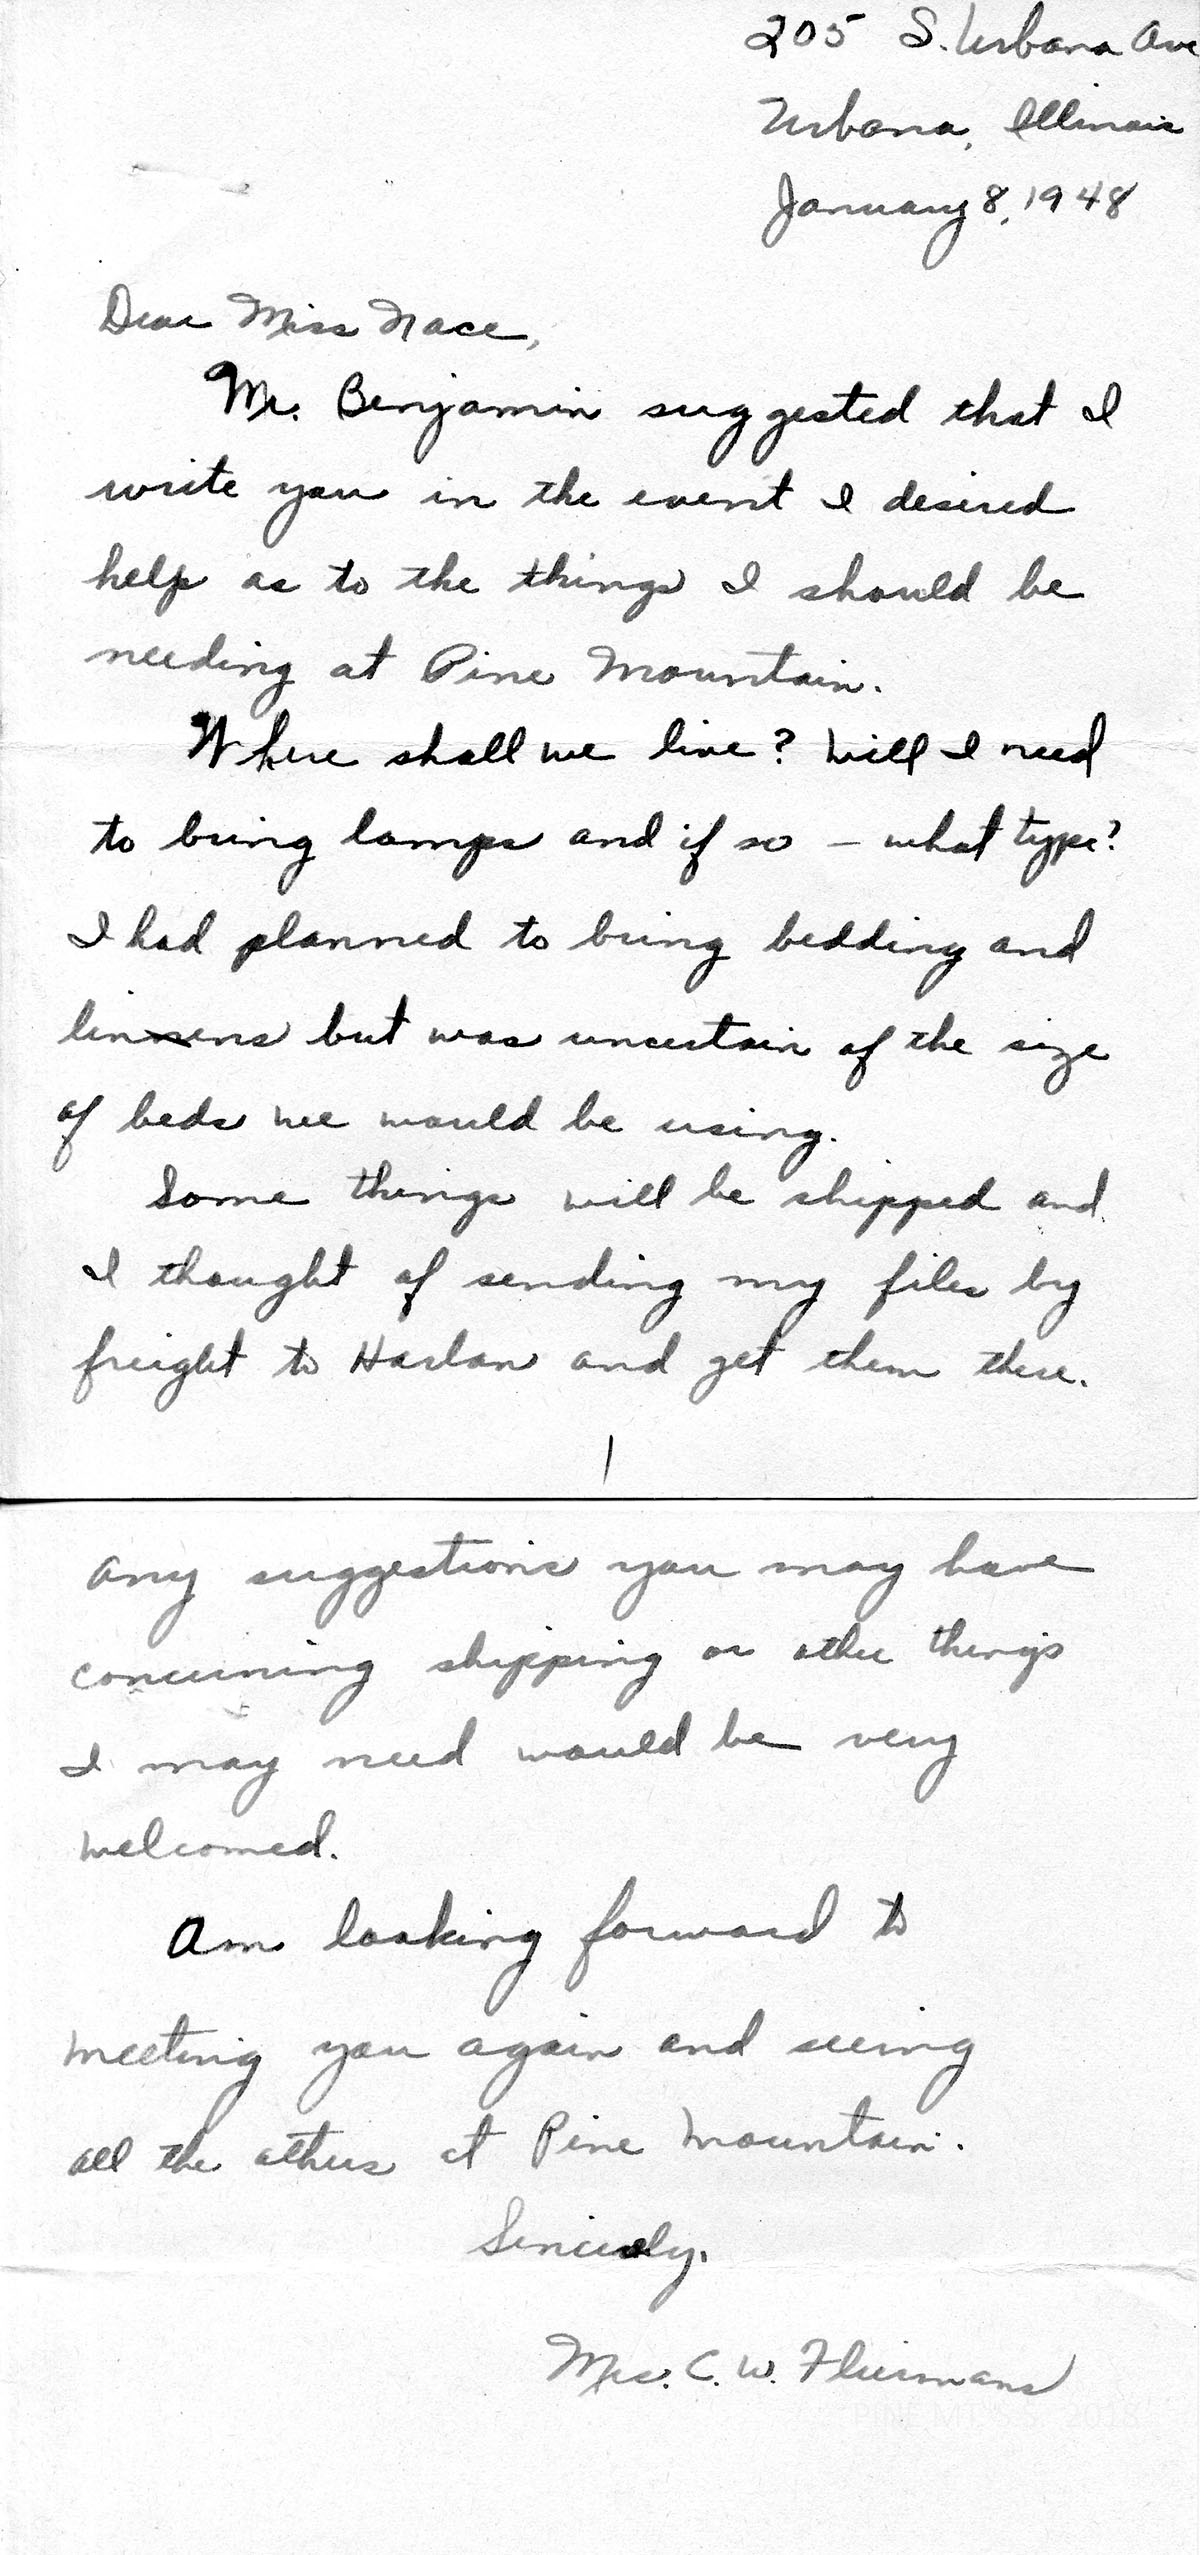 205 S. Urbana Ave
Urbana, Illinois
January 8, 1948
Dear Miss Nace,
Mr. Benjamin suggested that I
write you in the event I desired
help as to the things I should be
needing at Pine Mountain.
Where shall we live? Will I need
to bring lamps and if so – what type?
I had planned to bring bedding and
linens but was uncertain of the size
of beds we would be using.
Some things will be shipped and
I thought of sending my files by
freight to Harlan and get them there.
1
Any suggestions you may have
concerning shipping or other things
I may need would be very
welcomed.
Am looking forward to
meeting you again and seeing
all the others at Pine Mountain.
Sincerely,
Mrs. C. W. Fliermans
PINE MT. S.S. 2018